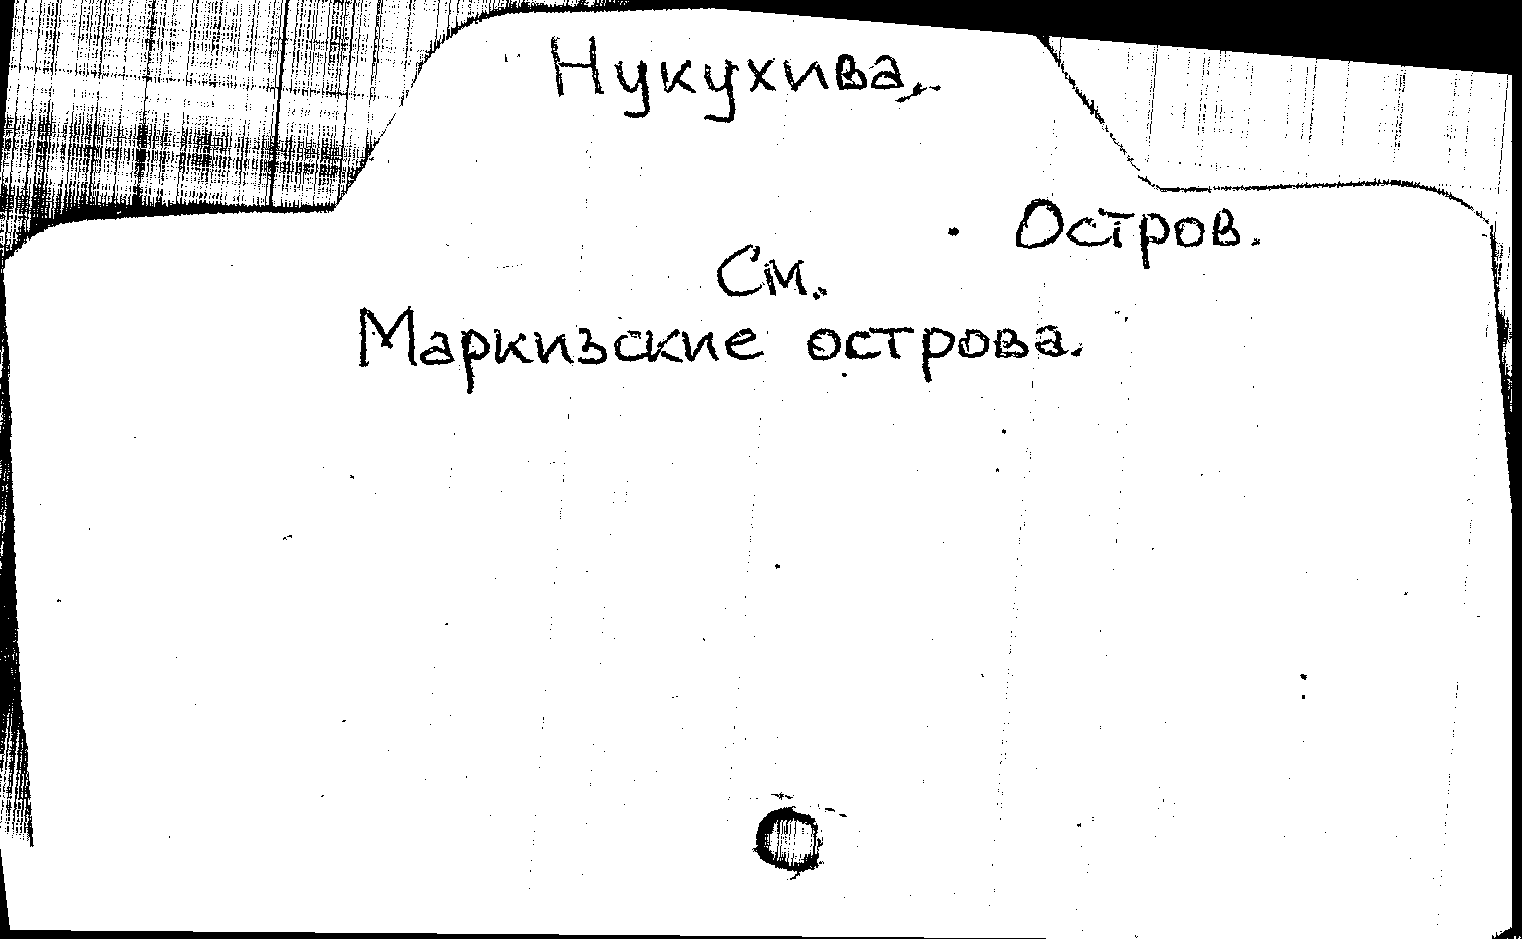 Нукухива,
Остров.
См.
Маркизские острова.